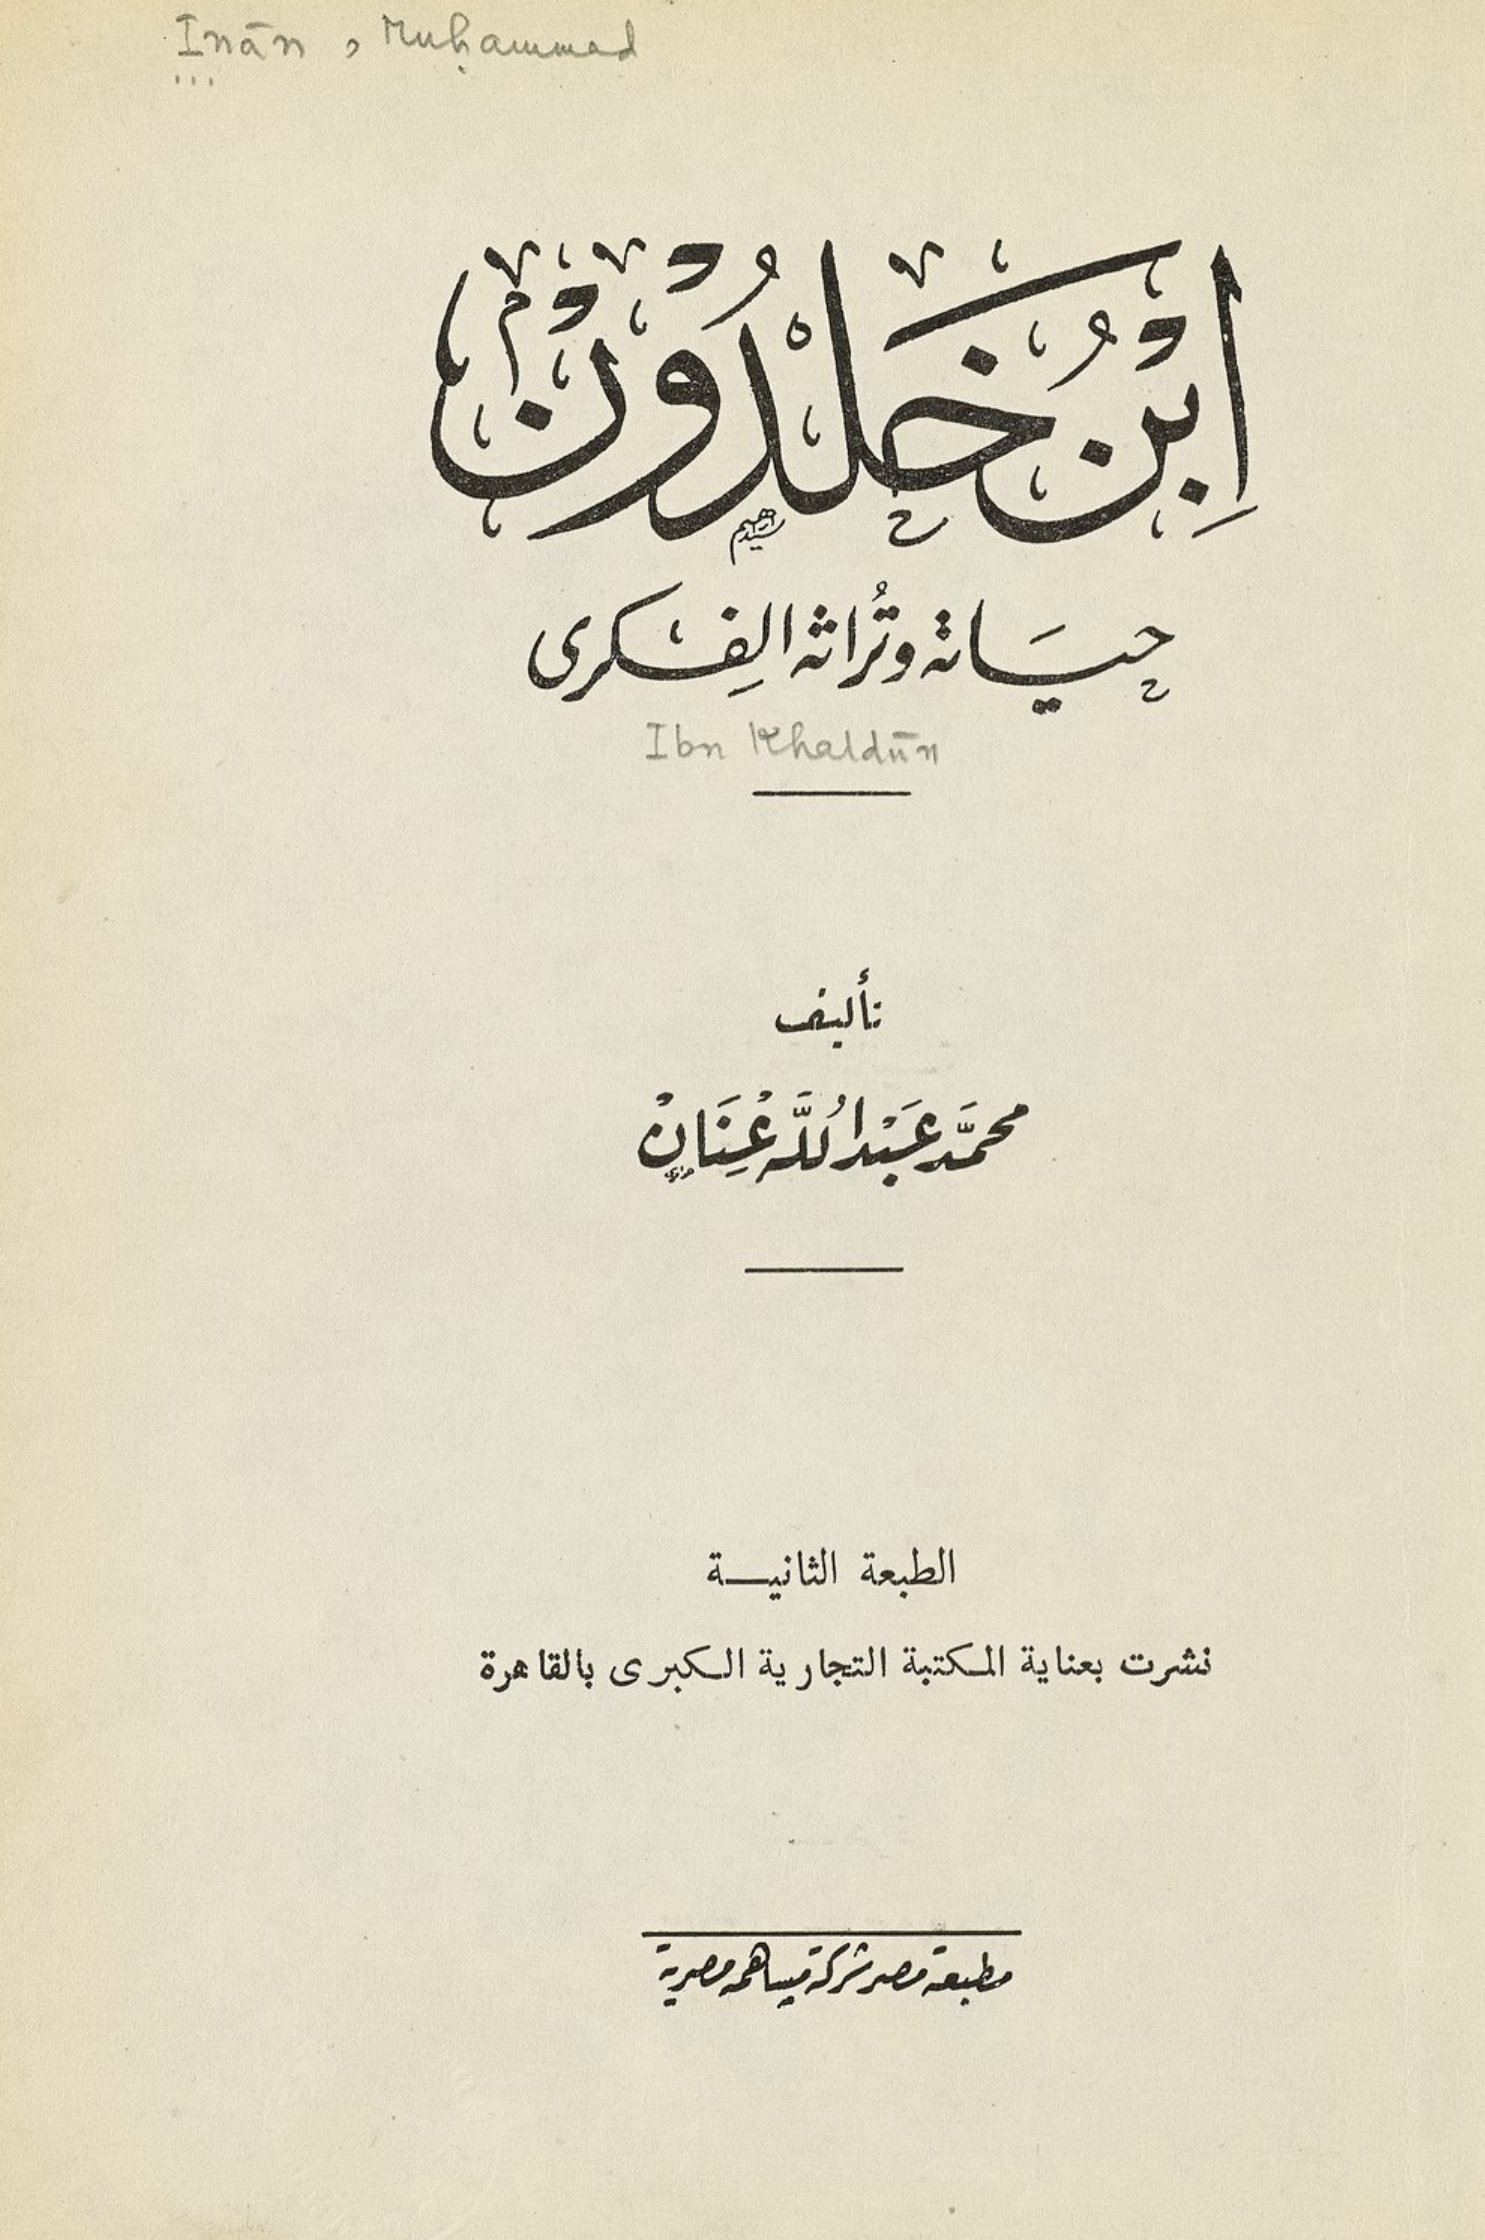 Inān, Muḥammad
ابْنُ خَلْدُوْنْ
حياته وتُراثه الفِكرى
Ibn Khaldūn
تأليف
محمَّد عَبْدُ اللَّه عِنَانْ
الطبعة الثانيـــة
نشرت بعناية المكتبة التجارية الكبرى بالقاهرة
مطبعة مصر شركة مساهمة مصرية